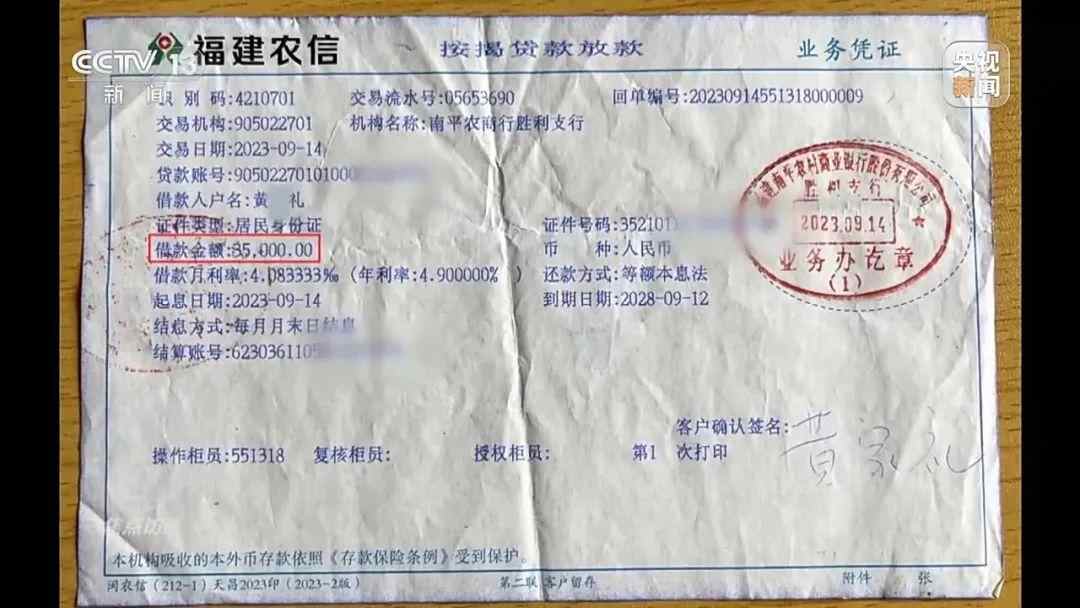 CCTV 13
新闻
央视
新闻
福建农信 按揭贷款放款 业务凭证
识别码:4210701 交易流水号:05653690 回单编号:20230914551318000009
交易机构:905022701 机构名称:南平农商行胜利支行
交易日期:2023-09-14
贷款账号:90502270101000
借款人户名:黄 礼
证件类型:居民身份证 证件号码:352101
借款金额:35,000.00 币 种:人民币
借款月利率:4.083333‰ (年利率:4.900000% ) 还款方式:等额本息法
起息日期:2023-09-14 到期日期:2028-09-12
结息方式:每月月末日结息
结算账号:6230361105
福建南平农村商业银行股份有限公司
胜利支行
2023.09.14
业务办讫章
(1)
客户确认签名:黄家礼
操作柜员:551318 复核柜员: 授权柜员: 第1 次打印
焦点访
本机构吸收的本外币存款依照《存款保险条例》受到保护。
闽农信(212-1)天昌2023印(2023-2版) 第二联 客户留存 附件 张